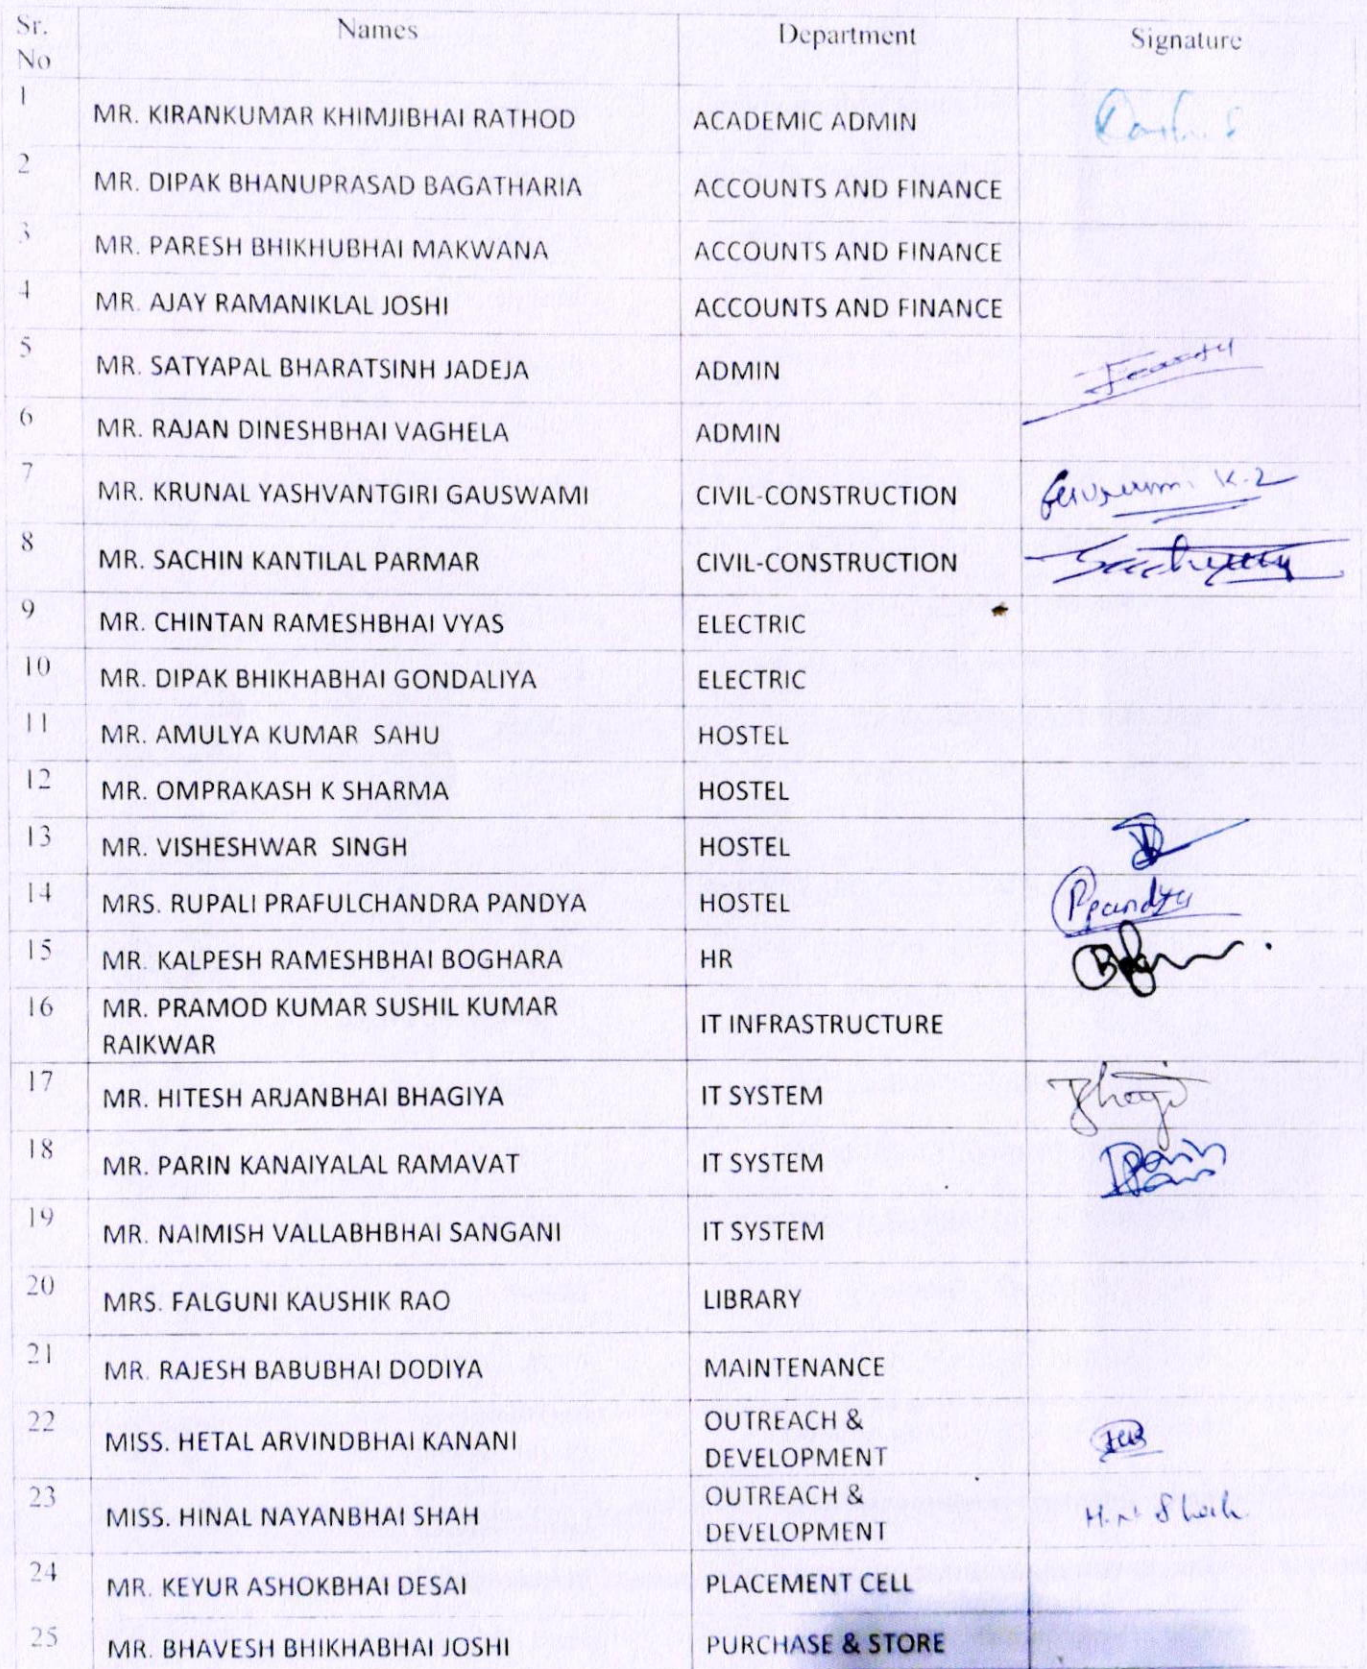 Sr. No Names Department Signature
1 MR. KIRANKUMAR KHIMJIBHAI RATHOD ACADEMIC ADMIN
2 MR. DIPAK BHANUPRASAD BAGATHARIA ACCOUNTS AND FINANCE
3 MR. PARESH BHIKHUBHAI MAKWANA ACCOUNTS AND FINANCE
4 MR. AJAY RAMANIKLAL JOSHI ACCOUNTS AND FINANCE
5 MR. SATYAPAL BHARATSINH JADEJA ADMIN
6 MR. RAJAN DINESHBHAI VAGHELA ADMIN
7 MR. KRUNAL YASHVANTGIRI GAUSWAMI CIVIL-CONSTRUCTION
8 MR. SACHIN KANTILAL PARMAR CIVIL-CONSTRUCTION
9 MR. CHINTAN RAMESHBHAI VYAS ELECTRIC
10 MR. DIPAK BHIKHABHAI GONDALIYA ELECTRIC
11 MR. AMULYA KUMAR SAHU HOSTEL
12 MR. OMPRAKASH K SHARMA HOSTEL
13 MR. VISHESHWAR SINGH HOSTEL
14 MRS. RUPALI PRAFULCHANDRA PANDYA HOSTEL Ppandya
15 MR. KALPESH RAMESHBHAI BOGHARA HR
16 MR. PRAMOD KUMAR SUSHIL KUMAR
RAIKWAR IT INFRASTRUCTURE
17 MR. HITESH ARJANBHAI BHAGIYA IT SYSTEM
18 MR. PARIN KANAIYALAL RAMAVAT IT SYSTEM
19 MR. NAIMISH VALLABHBHAI SANGANI IT SYSTEM
20 MRS. FALGUNI KAUSHIK RAO LIBRARY
21 MR. RAJESH BABUBHAI DODIYA MAINTENANCE
22 MISS. HETAL ARVINDBHAI KANANI OUTREACH &
DEVELOPMENT
23 MISS. HINAL NAYANBHAI SHAH OUTREACH &
DEVELOPMENT
24 MR. KEYUR ASHOKBHAI DESAI PLACEMENT CELL
25 MR. BHAVESH BHIKHABHAI JOSHI PURCHASE & STORE